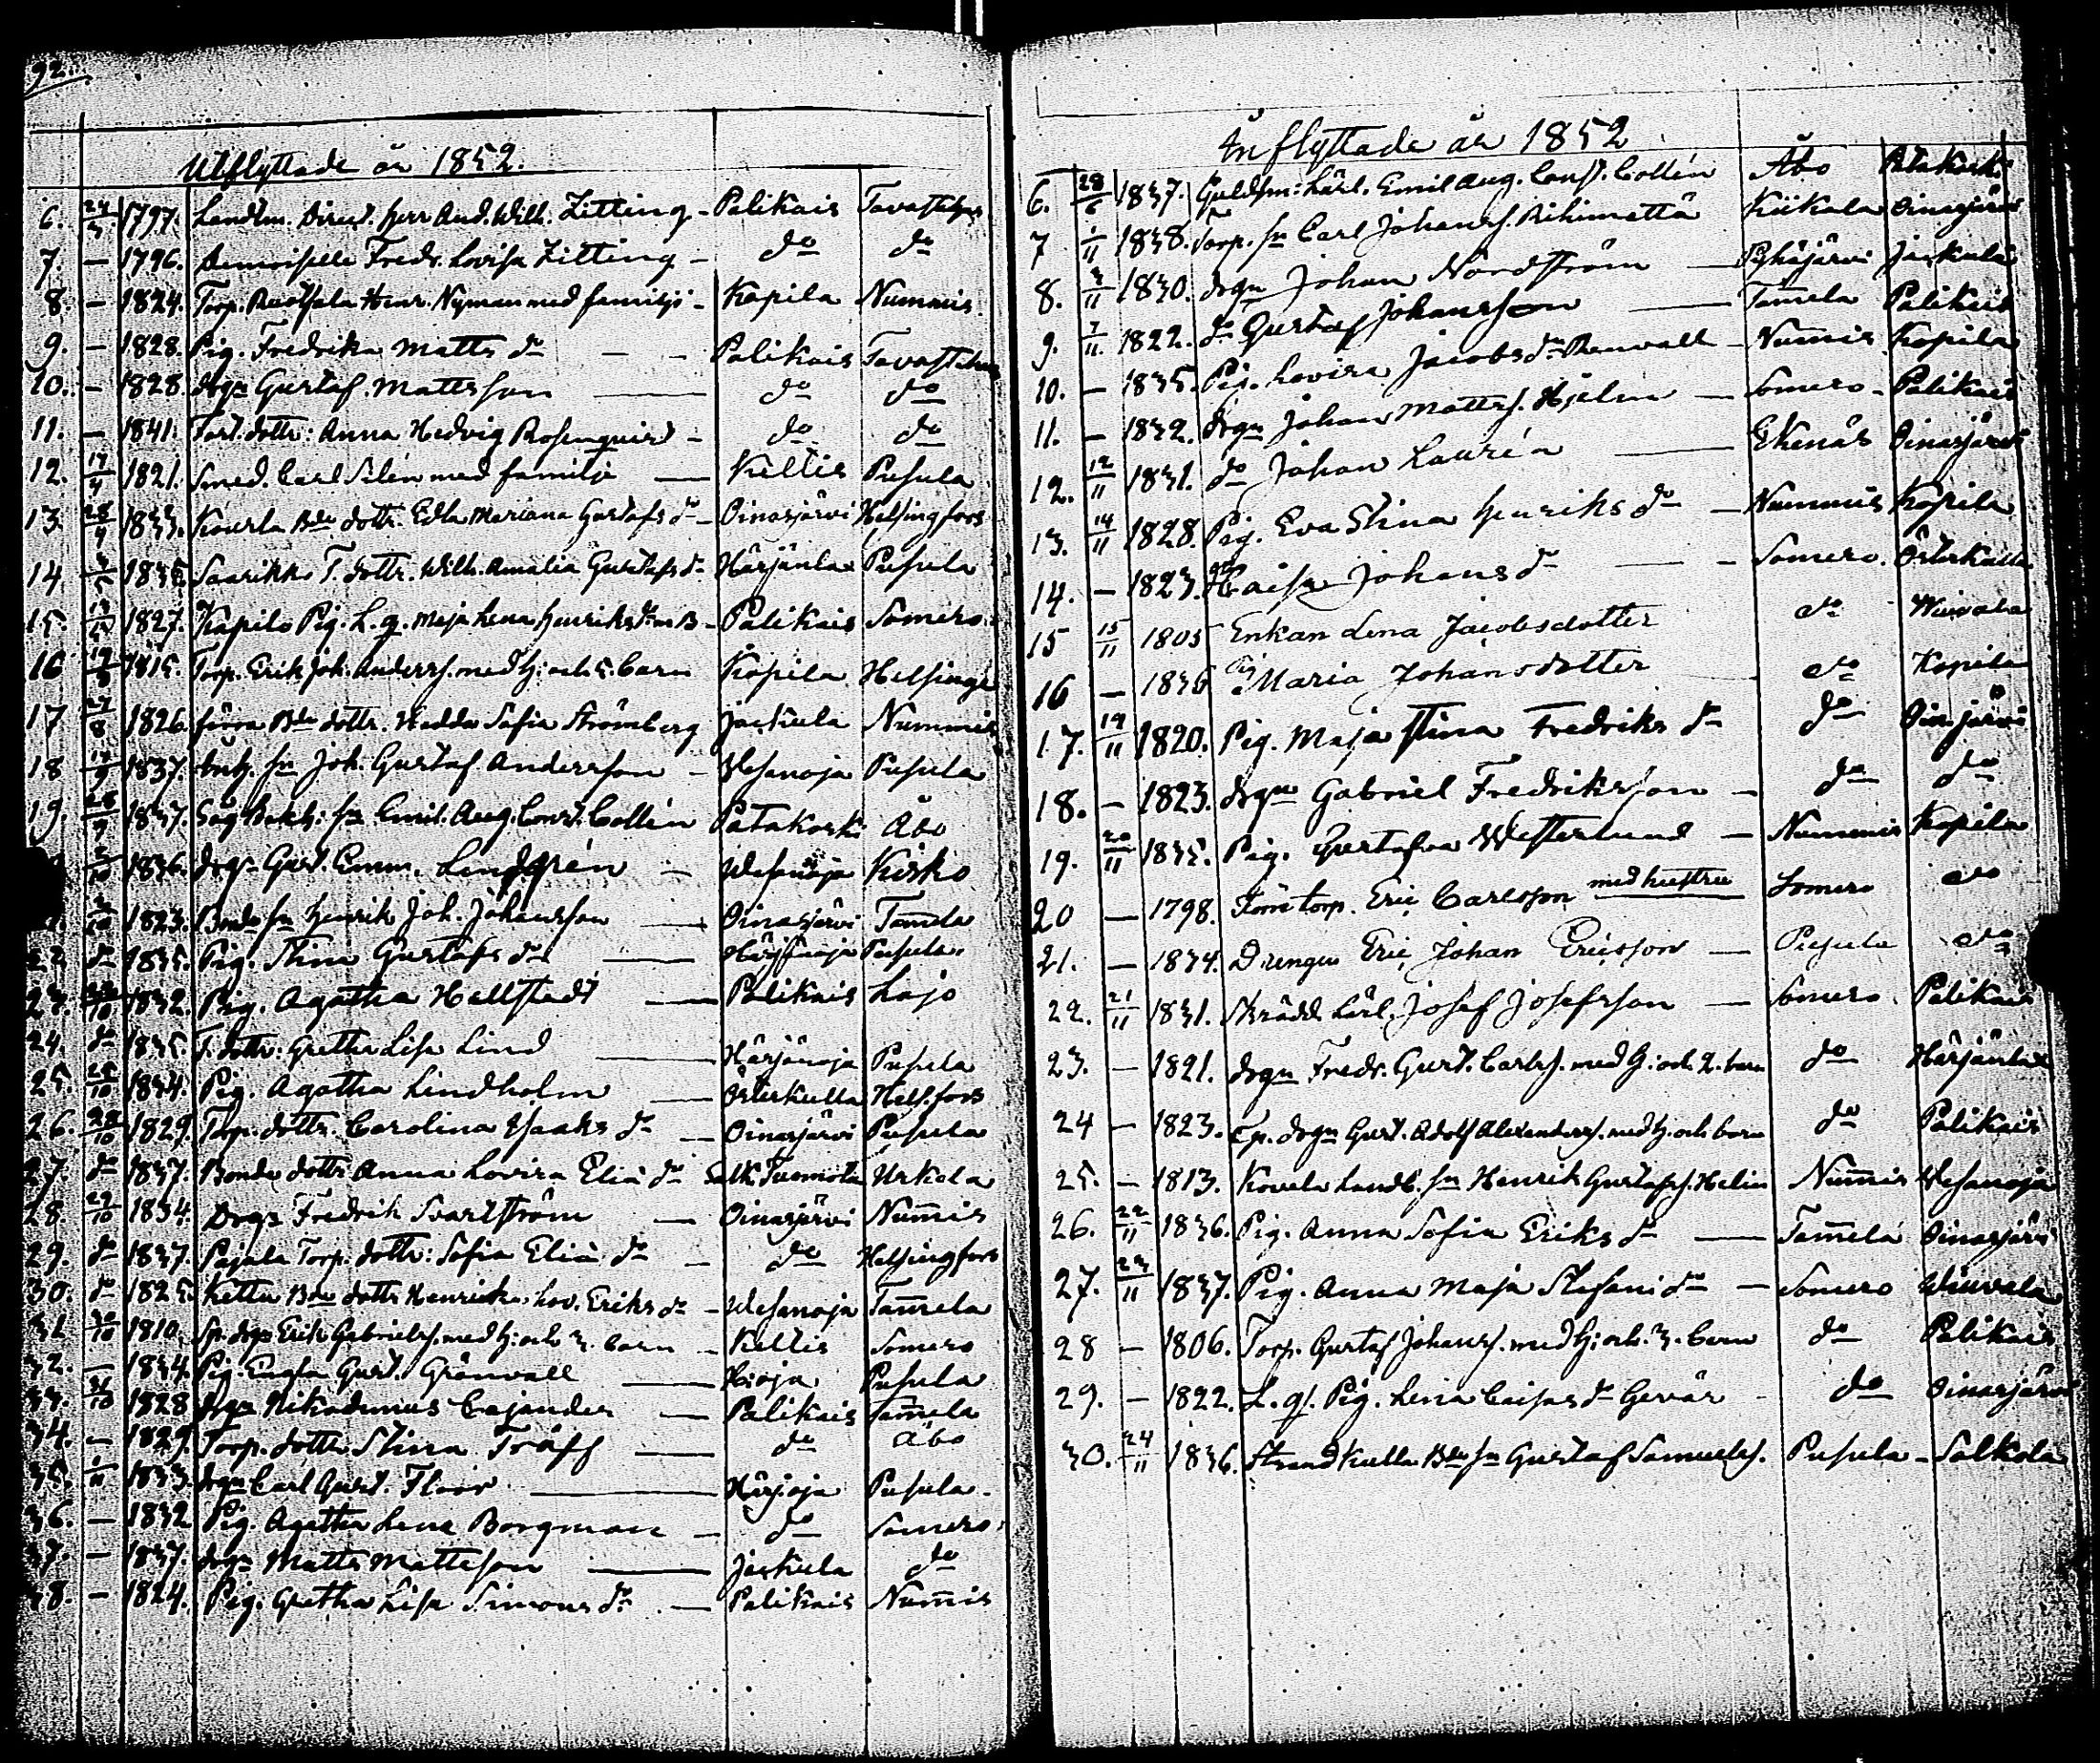 92.
Utflyttade år 1852.
6. 24/3 1797. Landtm. Direct. Herr And. Wilh. Zitting - Palikais Tavastehus
7. — 1796. Demoiselle Fredr. Lovisa Zitting - do do
8. — 1824. Torp. Henr. Nyman med familje - Kopila Nummis
9. — 1828. Pig. Fredrika Matts dr — - Palikais Tavastehus
10. — 1828. drgn Gustaf Mattsson — do do
11. — 1841. dottr: Anna Hedvig Rosenqvist - do do
12. 17/4 1821. Smed. Carl Silén med familje — Kellis Pusula
13. 28/4 1833. Kourla Bde dottr. Edla Mariana Gustafs dr - Oinasjärvi Helsingfors
14. 1835 Saarikko T. dottr. Wilh. Amalia Gustafs dr Härjänlax Pusula
15. 1827. Kopilo Pig. L. q. Maja Lena Henriks dr - Palikais Somero
16 1815. Torp. Erik Joh. Anderss. med h: och 5. barn Kopila Helsinge
17 27/8 1826. Bde dottr. Hedda Sofia Strömberg Jackula Nummis
18 17/9 1837. sn Joh. Gustaf Andersson - Wesanoja Pusula
19. 28/9 1837. Såg Bokh: sn Emil. Aug. Const. Collin Patakoski Åbo
2/10 1836. drgn Gust. Emm. Lindgrén — Wesanoja Kisko
1823. Bonde sn Henrik Joh. Johansson — Oinasjärvi Tamela
22. do 1835. Pig. Stina Gustafs dr — Pusula
23. 1832. Pig. Agatha Hellstedt — Palikais Lojo
24. do 1835. T. dottr: Gretha Lisa Lind — Härjänoja Pusula
25. 25/10 1834. Pig. Agatha Lindholm — Österkulla Hels.fors
26. 28/10 1829. Torp. dottr. Carolina Isaaks dr — Oinasjärvi Pusula
27. do 1837. Bonde dottr Anna Lovisa Eliæ dr Salk. Tuomola Urkala
28. 29/10 1834. Drgn Fredrik Svartström — Oinasjärvi Numis
29. do 1837. Pajala Torp. dottr: Sofia Eliæ dr - do Helsingfors
30. do 1825. Kettu Bde dottr Henricka Lov. Eriks dr - Wesanoja Tamela
31 30/10 1810 drgn Erik Gabrielss. med h: och 3. barn - Kellis Somero
32. — 1834. Pig. Engla Gust. Grönvall — Hioja Pusula
33. 31/10 1828 drgn Nikodemus Cajander — Palikais Tamela
34. — 1829. Torp. dottr Stina Träff — do Åbo
35. 1/11 1833. drgn Carl Gust. Floor — Härjoja Pusula
36. — 1832 Pig. Agatha Lena Borgman — do Somero
37. — 1837. drgn Matts Mattsson — Jackula do
38. — 1824. Pig. Gretha Lisa Simons dr — Palikais Numis
Inflyttade år 1852
6. 28/6 1837. Guldsm: Lärl. Emil Aug. Const. Collén Åbo Patakoski
7 1/11 1838. Torp. sn Carl Johanss. Rihimattä Kiikala Oinasjärvi
8. 3/11 1830. drgn Johan Nordström — Pyhäjärvi Jackula
9. 7/11 1822. do Gustaf Johansson — Tamela Palikais
10. — 1835. Pig. Lovisa Jacobs dr Renvall - Numis Kopila
11. — 1832. drgn Johan Mattss. Hjelm — Somero - Palikais
12. 12/11 1831. do Johan Laurén — Ekenäs Oinasjärvi
13. 14/11 1828. Pig. Eva Stina Henriks dr — Nummis Kopila
14. — 1823. Caisa Johans dr — Somero. Österkulla
15 15/11 1805 Enkan Lena Jacobsdotter do Wiuvala
16 — 1836 Pig Maria Johansdotter do Kopila
17. 19/11 1820. Pig. Maja Stina Fredriks dr do Oinasjärvi
18. — 1823. drgn Gabriel Fredriksson — do do
19. 20/11 1835. Pig. Gustafva Westerlund — Nummis Kopila
20 — 1798. Torp. Eric Carlsson med hustru Somero do
21. — 1834. Drengen Eric Johan Ericsson — Pusula do
22. 21/11 1831. Skrädd. Lärl. Josef Josefsson — Somero Palikais
23. — 1821. drgn Fredr. Gust. Carlss. med h: och 2. barn do Härjänlax
24 — 1823. drgn Gust. Adolf Alexanderss. med h: och barn do Palikais
25. — 1813. Kovela Landb. sn Henrik Gustafss. Helin Numis Wesanoja
26. 22/11 1836. Pig. Anna Sofia Eriks dr — Tamela Oinasjärvi
27. 23/11 1837. Pig. Anna Maja Stefani dr — Somero Wiuvala
28 — 1806. Torp. Gustaf Johanss. med h: och 3. barn do Palikais
29. — 1822. L. q. Pig. Lena Caisas dr Gevär - do Oinasjärvi
30. 24/11 1836. Strandkulla Bde sn Gustaf Samuelss. Pusula - Salkola